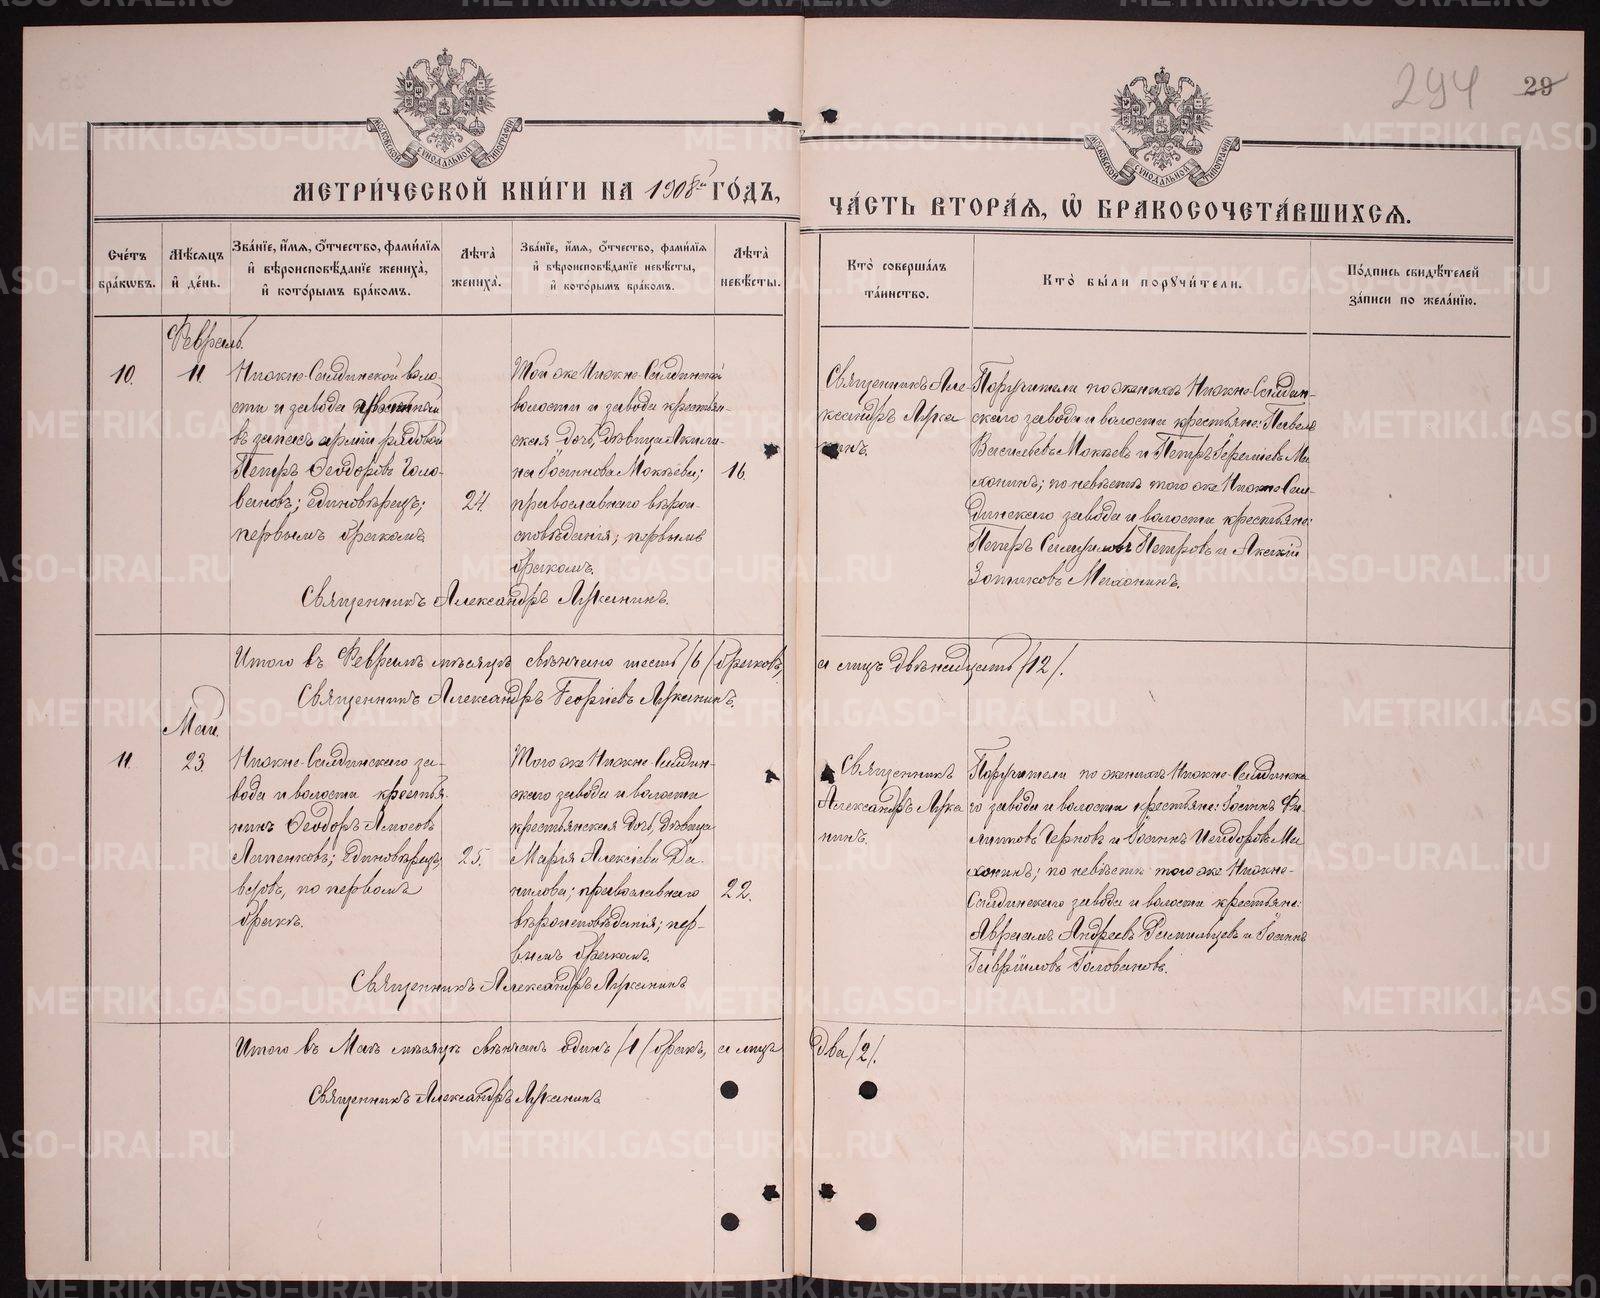 294 29
МЕТРИ́ЧЕСКОЙ КНИ́ГИ НА 1908й ГО́ДЪ,
ЧА́СТЬ ВТОРА́Ѧ, Ѽ БРАКОСОЧЕТА́ВШИХСѦ.
Сче́тъ бра́кѡвъ.
Мѣ́сѧцъ и҆ де́нь.
Зва́нїе, и҆́мѧ, ѻ҆́тчество, фами́лїѧ и҆ вѣроисповѣ́данїе жениха̀, и҆ кото́рымъ бра́комъ.
Лѣ́та̀ жениха̀.
Зва́нїе, и҆́мѧ, ѻ҆́тчество, фами́лїѧ и҆ вѣроисповѣ́данїе невѣ́сты, и҆ кото́рымъ бра́комъ.
Лѣ́та̀ невѣ́сты.
Кто̀ соверша́лъ та́инство.
Кто̀ бы́ли порꙋчи́тели.
По́дпись свидѣ́телей за́писи по жела́нїю.
Февраль.
10.
11.
Нижне-Салдинской воло-
сти и завода
въ запасъ арміи рядовой
Петръ Ѳеодоровъ Голо-
вановъ; единовѣрецъ;
первымъ бракомъ
24
Той же Нижне-Салдинской
волости и завода крестьян-
ская дочь, дѣвица Акили-
на Іоаннова Мокѣева;
православнаго вѣрои-
сповѣданія; первымъ
бракомъ.
16.
Священникъ Але-
ксандръ Лука
нинъ.
Поручители по женихѣ Нижне-Салдин-
скаго завода и волости крестьяне: Павелъ
Васильевъ Мокѣевъ и Петръ Ма-
хонинъ; по невѣстѣ того же Нижне-Сал-
динскаго завода и волости крестьяне:
Петръ Петровъ и Акакій
Зотиковъ Махонинъ.
Священникъ Александръ Луканинъ.
Итого въ Февралѣ мѣсяцѣ свѣнчано шесть /6/ браковъ, а лицъ двѣнадцать /12/.
Священникъ Александръ Георгіевъ Луканинъ.
Май.
11.
23.
Нижне-Салдинскаго за-
вода и волости крестья-
нинъ Ѳеодоръ Амосовъ
Лапенковъ; единовѣрецъ,
по первомъ
бракѣ.
25.
Того же Нижне-Салдин-
скаго завода и волости
крестьянская дочь, дѣвица
Марія Алексіева Да-
нилова; православнаго
вѣроисповѣданія; пер-
вымъ бракомъ.
22.
Священникъ
Александръ Лука
нинъ.
Поручители по женихѣ Нижне-Салдинска-
го завода и волости крестьяне: Іоаннъ Фи-
липповъ Черновъ и Іоаннъ Исидоровъ Ма-
хонинъ; по невѣстѣ того же Нижне-
Салдинскаго завода и волости крестьяне:
Авраамъ Андреевъ Фамильцевъ и Іоаннъ
Гавріиловъ Головановъ.
Священникъ Александръ Луканинъ
Итого въ Маѣ мѣсяцѣ свѣнчанъ одинъ /1/ бракъ, а лицъ два /2/.
Священникъ Александръ Луканинъ
METRIKI.GASO-URAL.RU